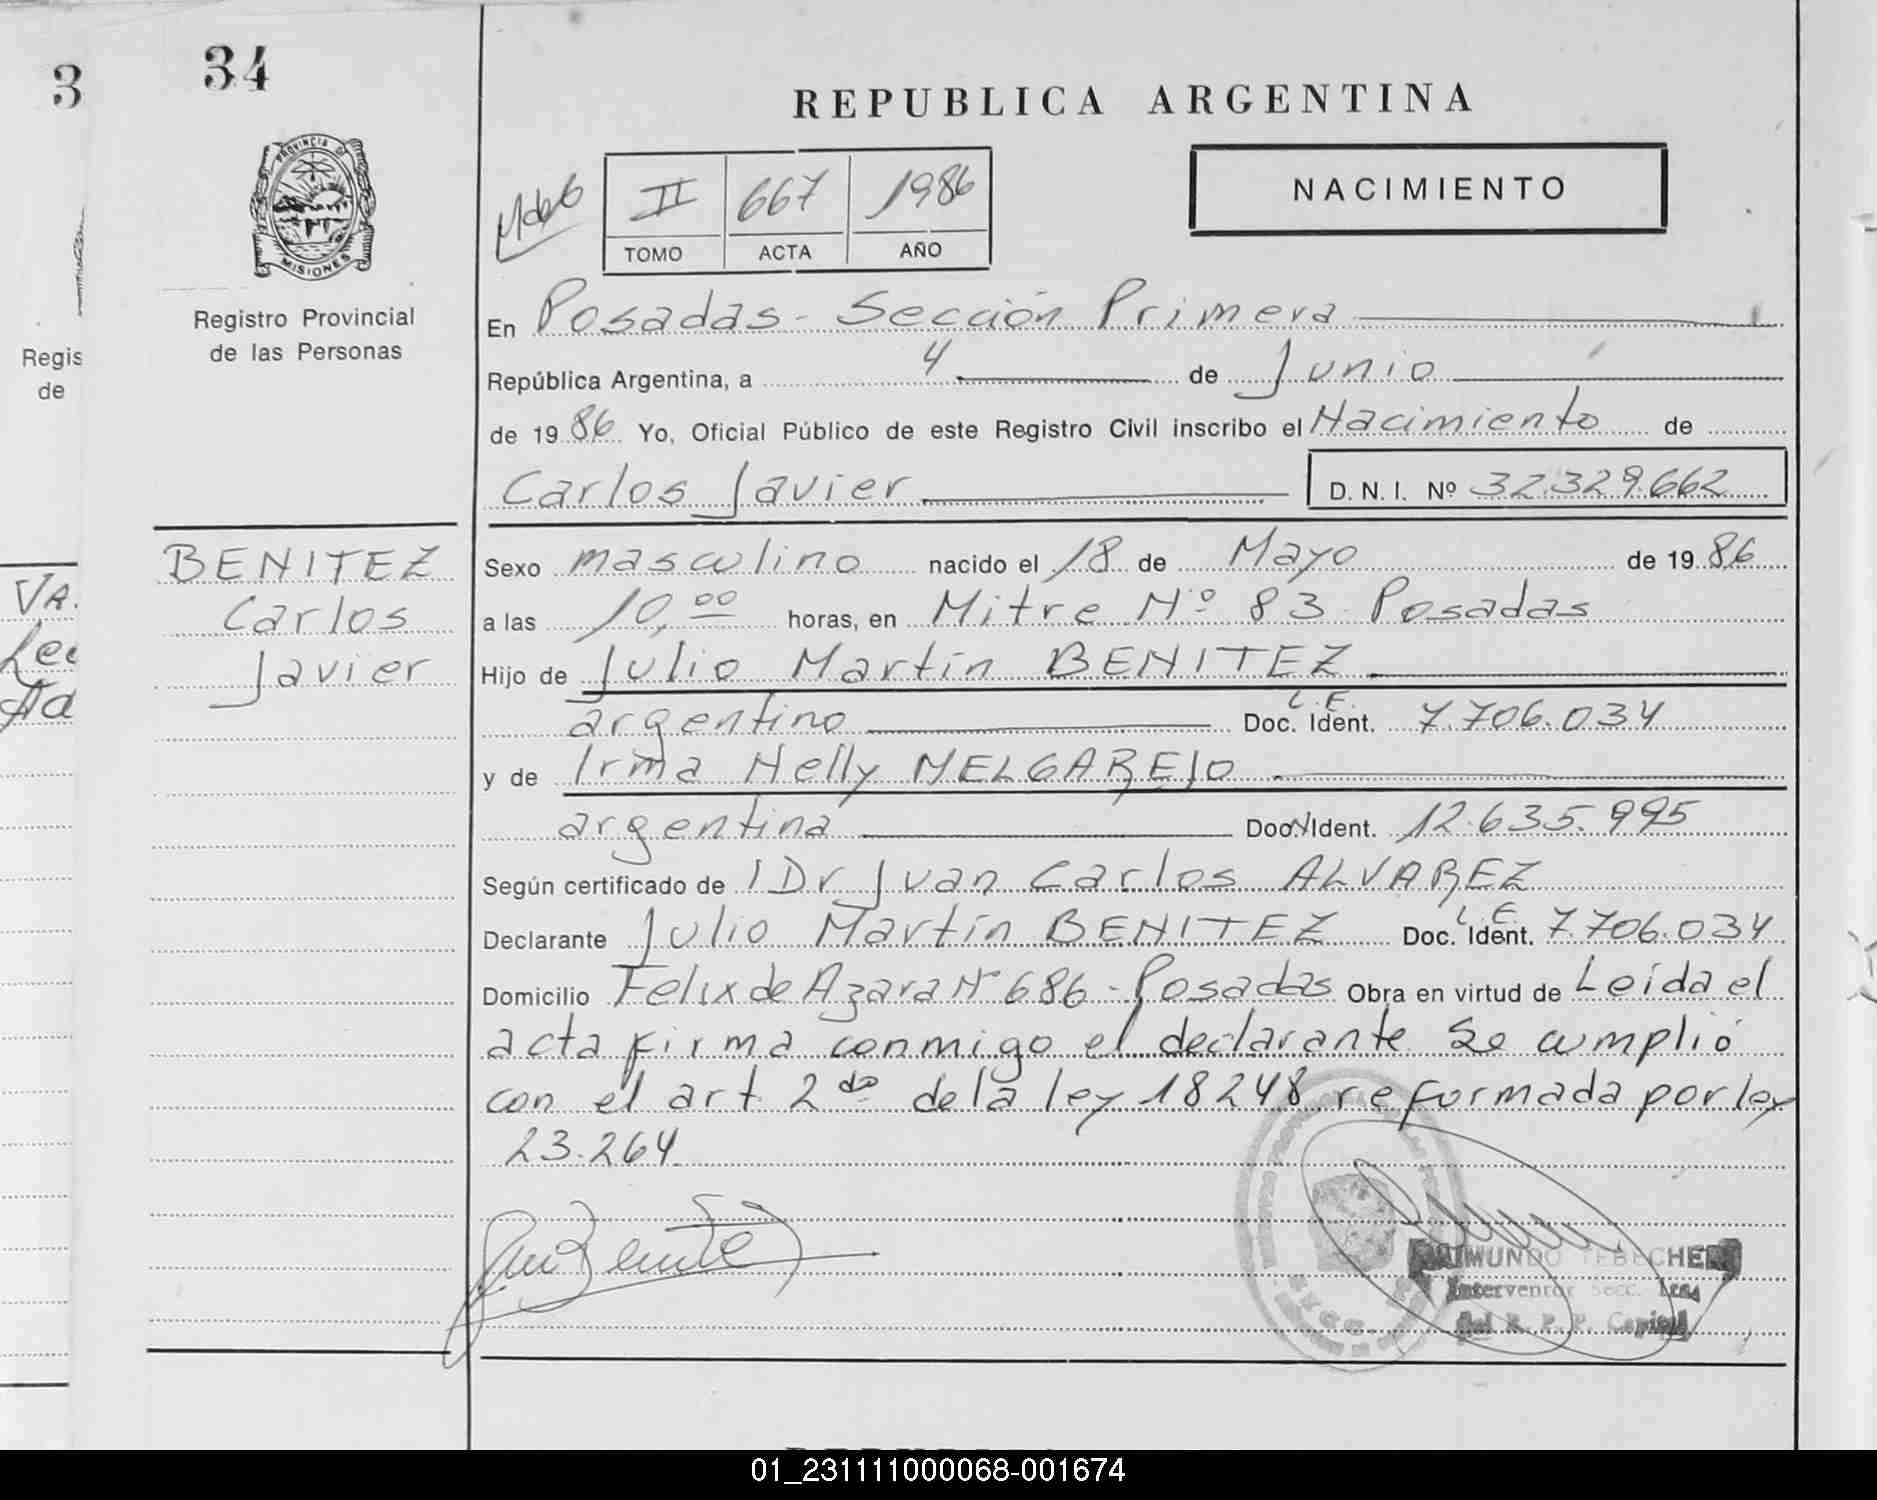 3
34
REPUBLICA ARGENTINA
PROVINCIA DE
MISIONES
II 667 1986
TOMO ACTA AÑO
NACIMIENTO
Registro Provincial
de las Personas
Regis
de
En Posadas - Sección Primera
República Argentina, a 4 de Junio
de 1986 Yo, Oficial Público de este Registro Civil inscribo el Nacimiento de
Carlos Javier D. N. I. Nº 32.329.662
VA.
BENITEZ
Carlos
Javier
Sexo masculino nacido el 18 de Mayo de 1986
a las 10,00 horas, en Mitre Nº 83 Posadas
Hijo de Julio Martín BENITEZ
argentino Doc. Ident. L.E. 7.706.034
y de Irma Nelly MELGAREJO
argentina Doc. Ident. 12.635.995
Según certificado de Dr Juan Carlos ALVAREZ
Declarante Julio Martín BENITEZ Doc. Ident. L.E. 7.706.034
Domicilio Felix de Azara Nº 686 - Posadas Obra en virtud de Leída el
acta firma conmigo el declarante Se cumplió
con el art 2do de la ley 18248 reformada por ley
23.264
RAIMUNDO TEBECHERI
Interventor Secc. 1ra
del R. P. P. Capital
01_231111000068-001674